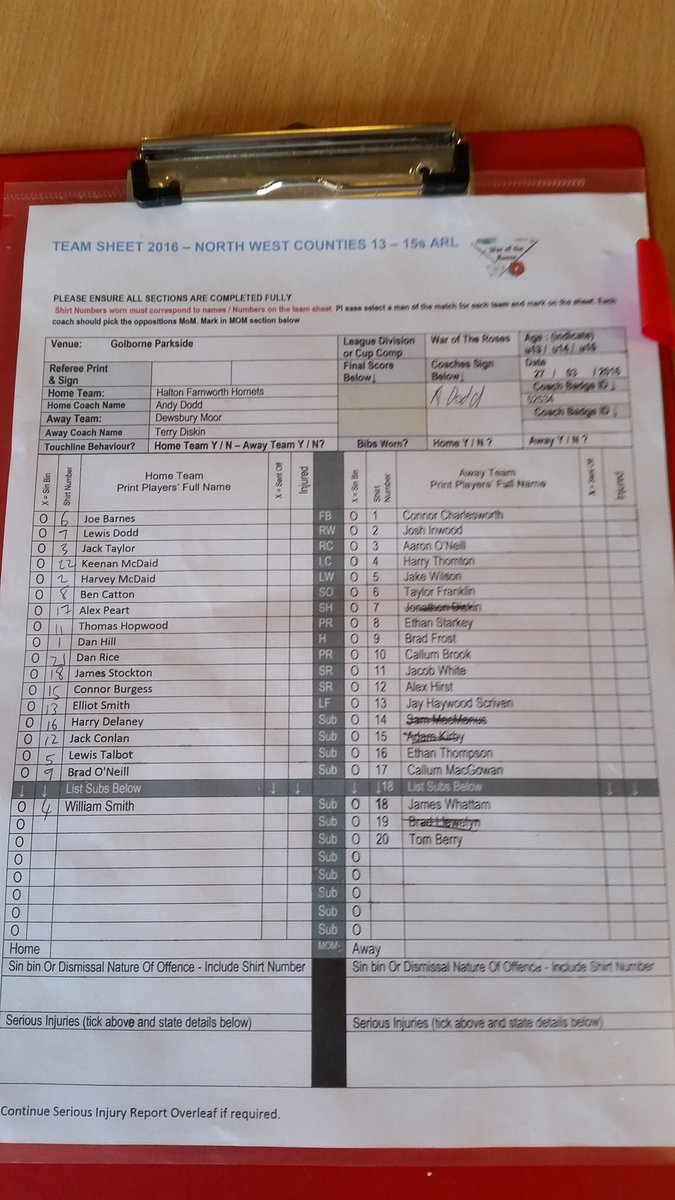 TEAM SHEET 2016 – NORTH WEST COUNTIES 13 – 15s ARL
War of the Roses
PLEASE ENSURE ALL SECTIONS ARE COMPLETED FULLY
Shirt Numbers worn must correspond to names / Numbers on the team sheet. Pl ease select a man of the match for each team and mark on the sheet. Each
coach should pick the oppositions MoM. Mark in MOM section below
Venue: Golborne Parkside League Division or Cup Comp War of The Roses Age : (indicate) u13 / u14 / u15
Referee Print & Sign Final Score Below↓ Coaches Sign Below↓ Date 27 / 03 / 2016
Home Team: Halton Farnworth Hornets Coach Badge ID ↓
Home Coach Name Andy Dodd A Dodd
Away Team: Dewsbury Moor Coach Badge ID ↓
Away Coach Name Terry Diskin
Touchline Behaviour? Home Team Y / N – Away Team Y / N? Bibs Worn? Home Y / N ? Away Y / N ?
X = Sin Bin Shirt Number Home Team Print Players' Full Name X = Sent Off Injured X = Sin Bin Shirt Number Away Team Print Players' Full Name X = Sent Off Injured
O 6 Joe Barnes FB O 1 Connor Charlesworth
O 7 Lewis Dodd RW O 2 Josh Inwood
O 3 Jack Taylor RC O 3 Aaron O'Neill
O 22 Keenan McDaid LC O 4 Harry Thornton
O 2 Harvey McDaid LW O 5 Jake Wilson
O 8 Ben Catton SO O 6 Taylor Franklin
O 17 Alex Peart SH O 7 Jonathon Diskin
O 11 Thomas Hopwood PR O 8 Ethan Starkey
O 1 Dan Hill H O 9 Brad Frost
O 21 Dan Rice PR O 10 Callum Brook
O 18 James Stockton SR O 11 Jacob White
O 15 Connor Burgess SR O 12 Alex Hirst
O 13 Elliot Smith LF O 13 Jay Haywood Scriven
O 16 Harry Delaney Sub O 14 Sam MacManus
O 12 Jack Conlan Sub O 15 Adam Kirby
O 5 Lewis Talbot Sub O 16 Ethan Thompson
O 9 Brad O'Neill Sub O 17 Callum MacGowan
↓ ↓ List Subs Below ↓ ↓ ↓ ↓18 List Subs Below ↓ ↓
O 4 William Smith Sub O 18 James Whattam
O Sub O 19 Brad Llewelyn
O Sub O 20 Tom Berry
O Sub O
O Sub O
O Sub O
O Sub O
O Sub O
Home MOM- Away
Sin bin Or Dismissal Nature Of Offence - Include Shirt Number Sin bin Or Dismissal Nature Of Offence - Include Shirt Number
Serious Injuries (tick above and state details below) Serious Injuries (tick above and state details below)
Continue Serious Injury Report Overleaf if required.